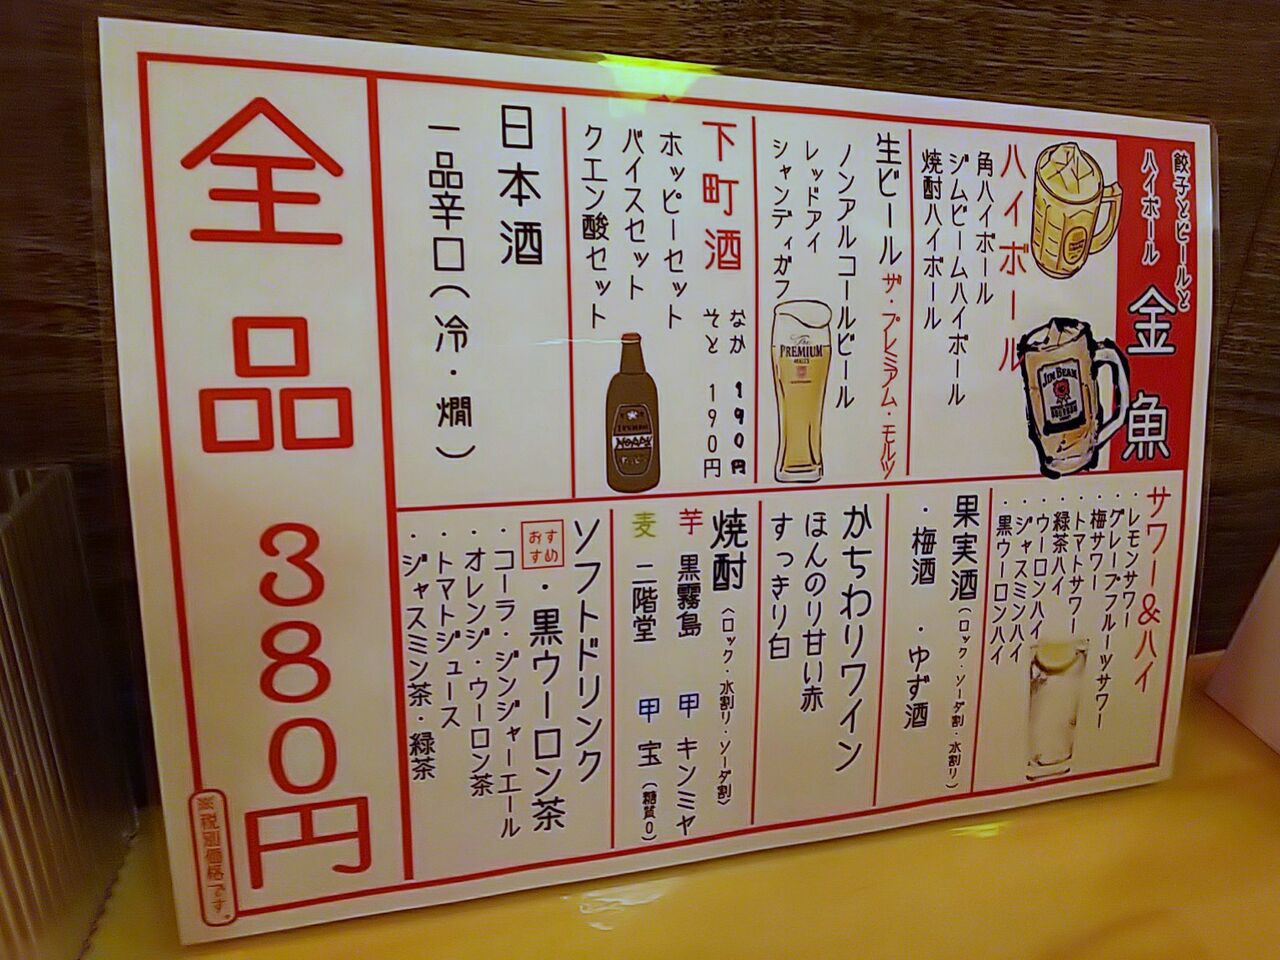 餃子とビールと
ハイボール
金魚
ハイボール
角ハイボール
ジムビームハイボール
焼酎ハイボール
JIM BEAM
BOURBON
生ビール ザ・プレミアム・モルツ
ノンアルコールビール
レッドアイ
シャンディガフ
The
PREMIUM
MALT'S
下町酒
なか 190円
そと 190円
ホッピーセット
バイスセット
クエン酸セット
HOPPY
日本酒
一品辛口(冷・燗)
サワー&ハイ
・レモンサワー
・グレープフルーツサワー
・梅サワー
・トマトサワー
・緑茶ハイ
・ウーロンハイ
・ジャスミンハイ
・黒ウーロンハイ
果実酒(ロック・ソーダ割・水割り)
・梅酒 ・ゆず酒
かちわりワイン
ほんのり甘い赤
すっきり白
焼酎(ロック・水割り・ソーダ割)
芋 黒霧島 甲 キンミヤ
麦 二階堂 甲 宝(糖質0)
ソフトドリンク
おすすめ ・黒ウーロン茶
・コーラ・ジンジャーエール
・オレンジ・ウーロン茶
・トマトジュース
・ジャスミン茶・緑茶
全品380円
※税別価格です。